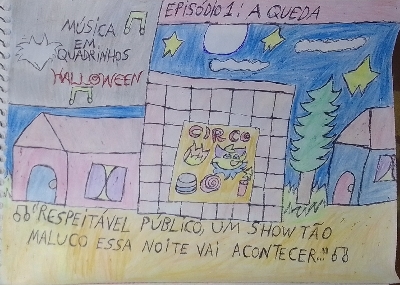 EPISÓDIO 1: A QUEDA
MÚSICA
EM
QUADRINHOS
HALLOWEEN
CIRCO
"RESPEITÁVEL PÚBLICO, UM SHOW TÃO
MALUCO ESSA NOITE VAI ACONTECER..."